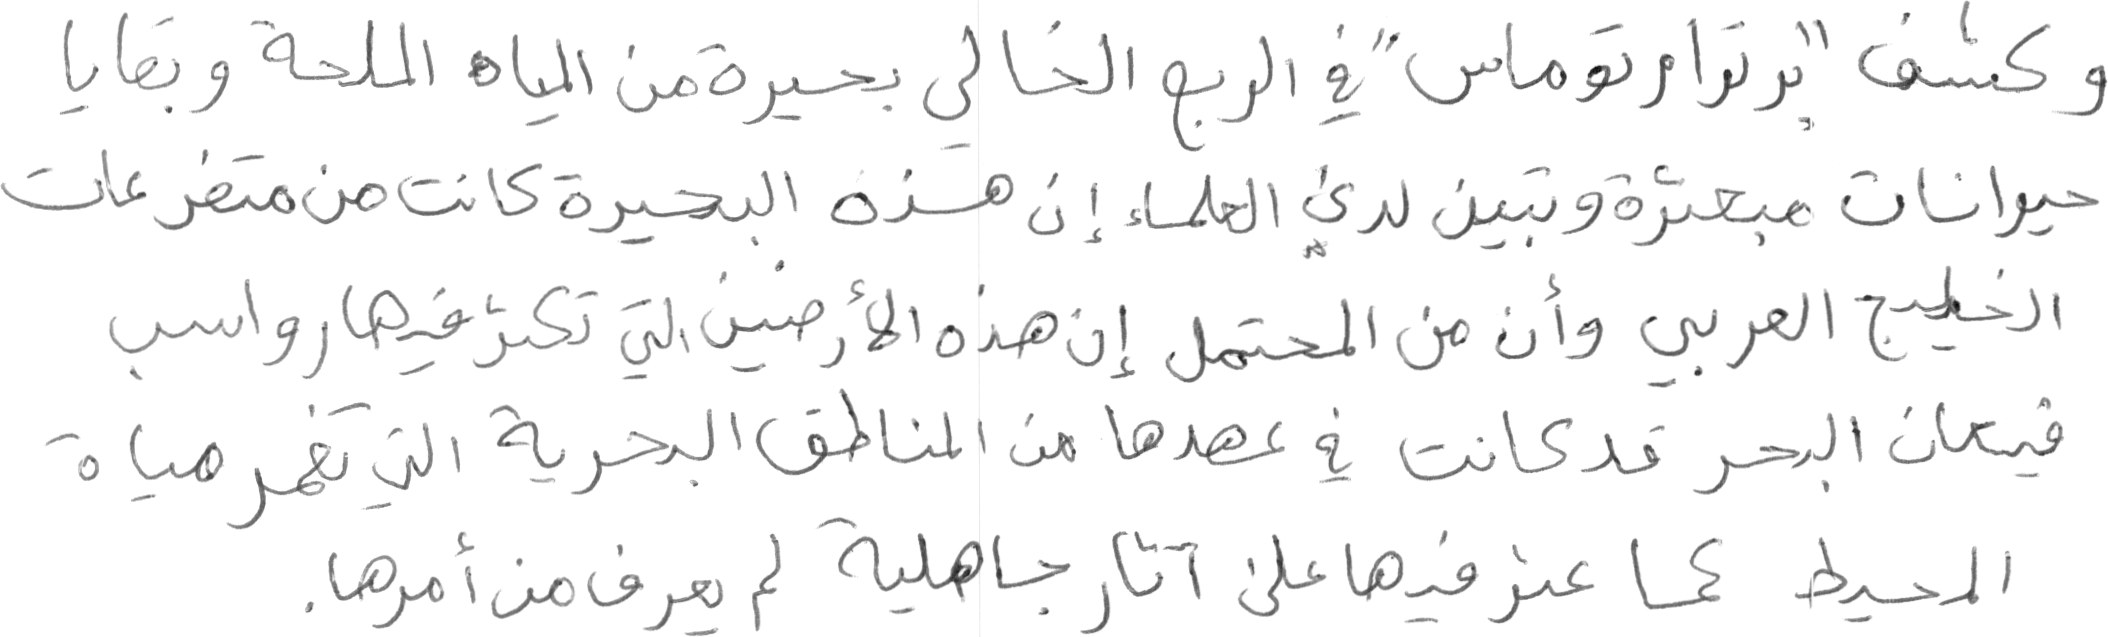 وكشف "برترام توماس" في الربع الخالي بحيرة من المياه المالحة وبقايا
حيوانات مبعثرة وتبين لدى العلماء إن هذه البحيرة كانت من متفرعات
الخليج العربي وأن من المحتمل إن هذه الأرضين التي تكثر فيها رواسب
قيعان البحر قد كانت في عهدها من المناطق البحرية التي تغمر مياة
المحيط كما عثر فيها على آثار جاهلية لم يعرف من أمرها.